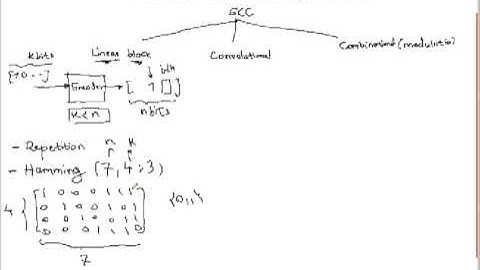 ECC
k bits
Linear block
Convolutional
[10--]
Encoder
[ 1 [] ]
ith
k<n
n bits
- Repetition
n k
- Hamming (7,4:3)
1 0 0 0 1 1 1
0 1 0 0 1 0 1
0 0 1 0 0 1 1
0 0 0 1 1 1 0
4
7